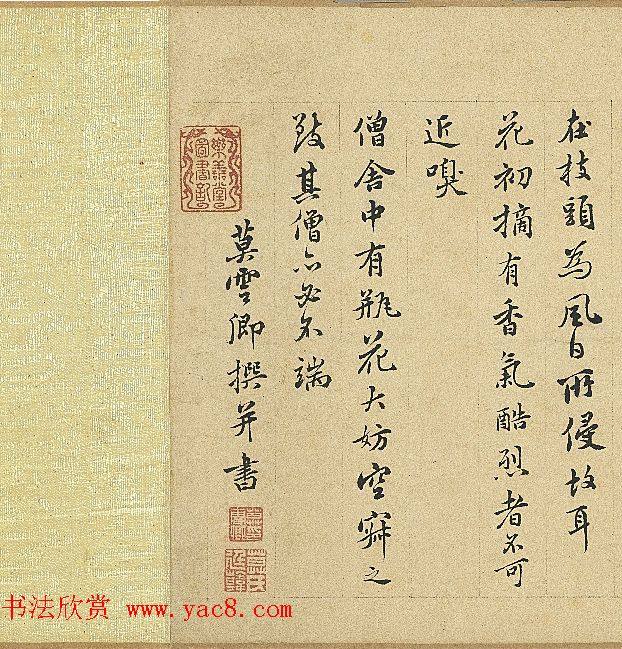 在枝頭為風日所侵故耳
花初摘有香氣酷烈者不可
近嗅
僧舍中有瓶花大妨空寂之
致其僧亦必不端
莫雲卿撰并書
樂善堂
圖書記
书法欣赏 www.yac8.com